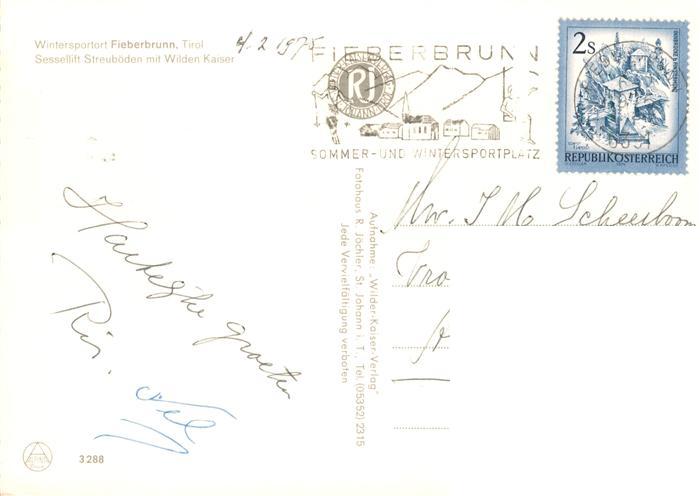 Wintersportort Fieberbrunn, Tirol
Sessellift Streuböden mit Wilden Kaiser
4.2 1975
FIEBERBRUNN
RJ
SOMMER- UND WINTERSPORTPLATZ
2s
REPUBLIK ÖSTERREICH
Hartelijke groeten
Mw. J M
Aufnahme: „Wilder-Kaiser-Verlag"
Fotohaus R. Jöchler, St. Johann i. T., Tel. (05352) 2315
Jede Vervielfältigung verboten
3288